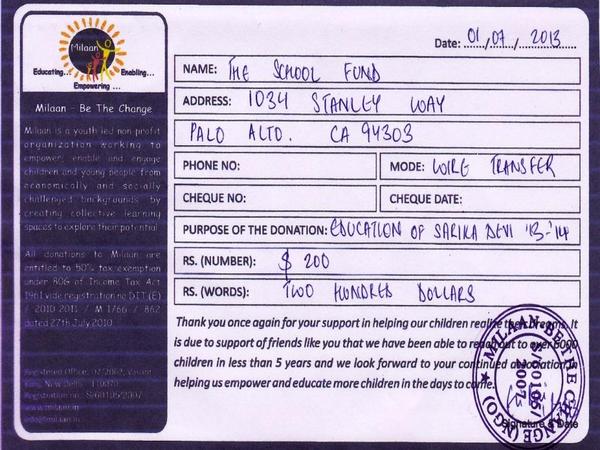 Milaan
Educating...
Enabling...
Empowering ...
Milaan - Be The Change
Milaan is a youth led non profit
organization working to
empower, enable and engage
children and young people from
economically and socially
challenged backgrounds by
creating collective learning
spaces to explore their potential
All donations to Milaan are
entitled to 50% tax exemption
under 80G of Income Tax Act
1961 vide registration no DIT (E)
/ 2010 2011 / M 1766 / 862
dated 27th July 2010
Registered Office:
New Delhi
Registration no.: S/60105/2007
Date: 01/07/2013
NAME: THE SCHOOL FUND
ADDRESS: 1034 STANLEY WAY
PALO ALTO. CA 94303
PHONE NO:
MODE: WIRE TRANSFER
CHEQUE NO:
CHEQUE DATE:
PURPOSE OF THE DONATION: EDUCATION OF SARIKA DEVI '13-'14
RS. (NUMBER): $ 200
RS. (WORDS): TWO HUNDRED DOLLARS
Thank you once again for your support in helping our children realize their dreams. It
is due to support of friends like you that we have been able to reach out to over 6000
children in less than 5 years and we look forward to your continued association in
helping us empower and educate more children in the days to come.
MILAAN BE THE CHANGE (NGO)
S/60105/
2007
Signature & Date